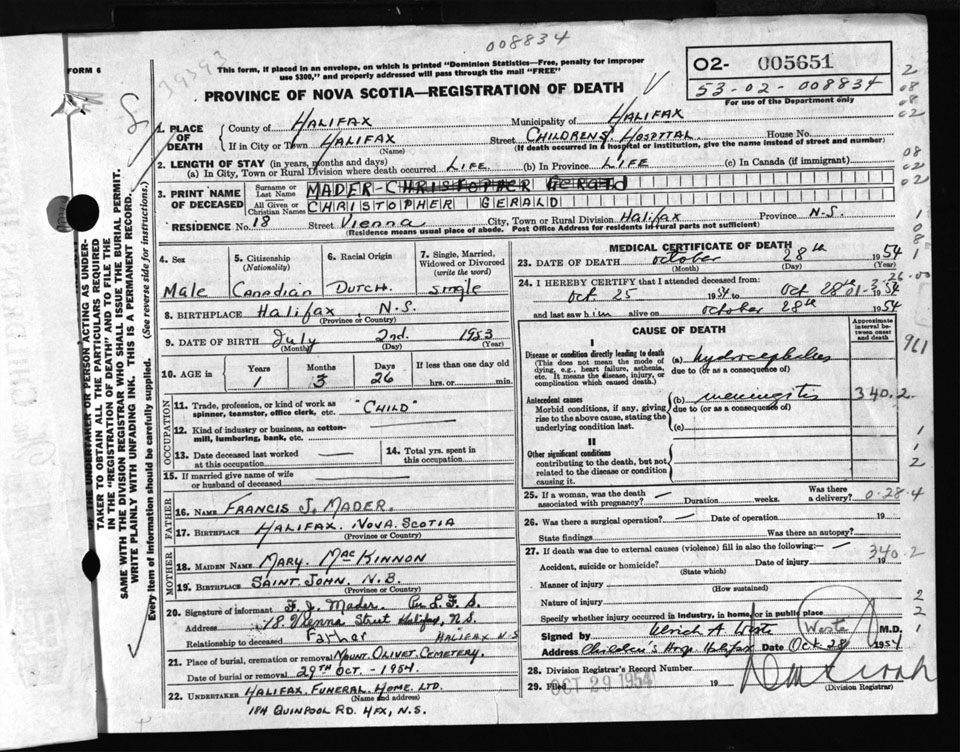 008834
39393
FORM 6
This form, if placed in an envelope, on which is printed "Dominion Statistics—Free, penalty for improper
use $300," and properly addressed will pass through the mail "FREE"
O2- 005651
53-02-008834
For use of the Department only
PROVINCE OF NOVA SCOTIA—REGISTRATION OF DEATH
1. PLACE OF DEATH
County of HALIFAX Municipality of HALIFAX
If in City or Town HALIFAX (Name) Street CHILDRENS HOSPITAL House No.
(If death occurred in a hospital or institution, give the name instead of street and number)
2. LENGTH OF STAY (in years, months and days)
(a) In City, Town or Rural Division where death occurred LIFE (b) In Province LIFE (c) In Canada (if immigrant)
3. PRINT NAME OF DECEASED
Surname or Last Name MADER-CHRISTOPHER GERALD
All Given or Christian Names CHRISTOPHER GERALD
RESIDENCE No. 18 Street Vienna City, Town or Rural Division Halifax Province N.S.
(Residence means usual place of abode. Post Office Address for residents in rural parts not sufficient)
4. Sex
Male
5. Citizenship (Nationality)
Canadian
6. Racial Origin
DUTCH.
7. Single, Married, Widowed or Divorced (write the word)
single
8. BIRTHPLACE Halifax, N.S.
(Province or Country)
9. DATE OF BIRTH July 2nd. 1953
(Month) (Day) (Year)
10. AGE in
Years 1
Months 3
Days 26
If less than one day old
hrs. or min.
OCCUPATION
11. Trade, profession, or kind of work as spinner, teamster, office clerk, etc. "CHILD"
12. Kind of industry or business, as cotton-mill, lumbering, bank, etc.
13. Date deceased last worked at this occupation
14. Total yrs. spent in this occupation
15. If married give name of wife or husband of deceased
FATHER
16. NAME FRANCIS J. MADER.
17. BIRTHPLACE HALIFAX. NOVA. SCOTIA
MOTHER
18. MAIDEN NAME MARY. MacKINNON
19. BIRTHPLACE SAINT JOHN. N.B.
20. Signature of informant F. J. Mader. Per L.F.S.
Address 18. Vienna Street Halifax, N.S.
Relationship to deceased Father HALIFAX N.S
21. Place of burial, cremation or removal MOUNT. OLIVET. CEMETERY.
Date of burial or removal 29TH OCT.-1954.
22. UNDERTAKER HALIFAX. FUNERAL. HOME. LTD.
(Name and address)
184 QUINPOOL RD. HFX, N.S.
MEDICAL CERTIFICATE OF DEATH
23. DATE OF DEATH October 28th 1954
(Month) (Day) (Year)
24. I HEREBY CERTIFY that I attended deceased from:
Oct 25 1954 to Oct 28th 1954
and last saw him alive on October 28th 1954
CAUSE OF DEATH
Approximate interval between onset and death
I
Disease or condition directly leading to death
(This does not mean the mode of dying, e.g., heart failure, asthenia, etc. It means the disease, injury, or complication which caused death.)
(a) hydrocephalus
due to (or as a consequence of)
Antecedent causes
Morbid conditions, if any, giving rise to the above cause, stating the underlying condition last.
(b) meningitis 340.2
due to (or as a consequence of)
(c)
II
Other significant conditions
contributing to the death, but not related to the disease or condition causing it.
25. If a woman, was the death associated with pregnancy? — Duration weeks. Was there a delivery?
0.28.4
26. Was there a surgical operation? — Date of operation 19
State findings Was there an autopsy?
27. If death was due to external causes (violence) fill in also the following:—
340.2
Accident, suicide or homicide? (State which) Date of injury 19
Manner of injury (How sustained)
Nature of injury
Specify whether injury occurred in industry, in home, or in public place
Signed by Ulrich A Weste Weste M.D.
Address Children's Hosp. Halifax Date Oct 28 1954
28. Division Registrar's Record Number
29. Filed OCT 29 1954 19
(Division Registrar)
OF THE UNDERTAKER OR PERSON ACTING AS UNDER-
TAKER TO OBTAIN ALL THE PARTICULARS REQUIRED
IN THE "REGISTRATION OF DEATH" AND TO FILE THE
SAME WITH THE DIVISION REGISTRAR WHO SHALL ISSUE THE BURIAL PERMIT.
WRITE PLAINLY WITH UNFADING INK. THIS IS A PERMANENT RECORD.
Every item of Information should be carefully supplied. (See reverse side for instructions.)
2
08
08
02
08
02
02
1
08
1
961
1
1
2
2
2
1